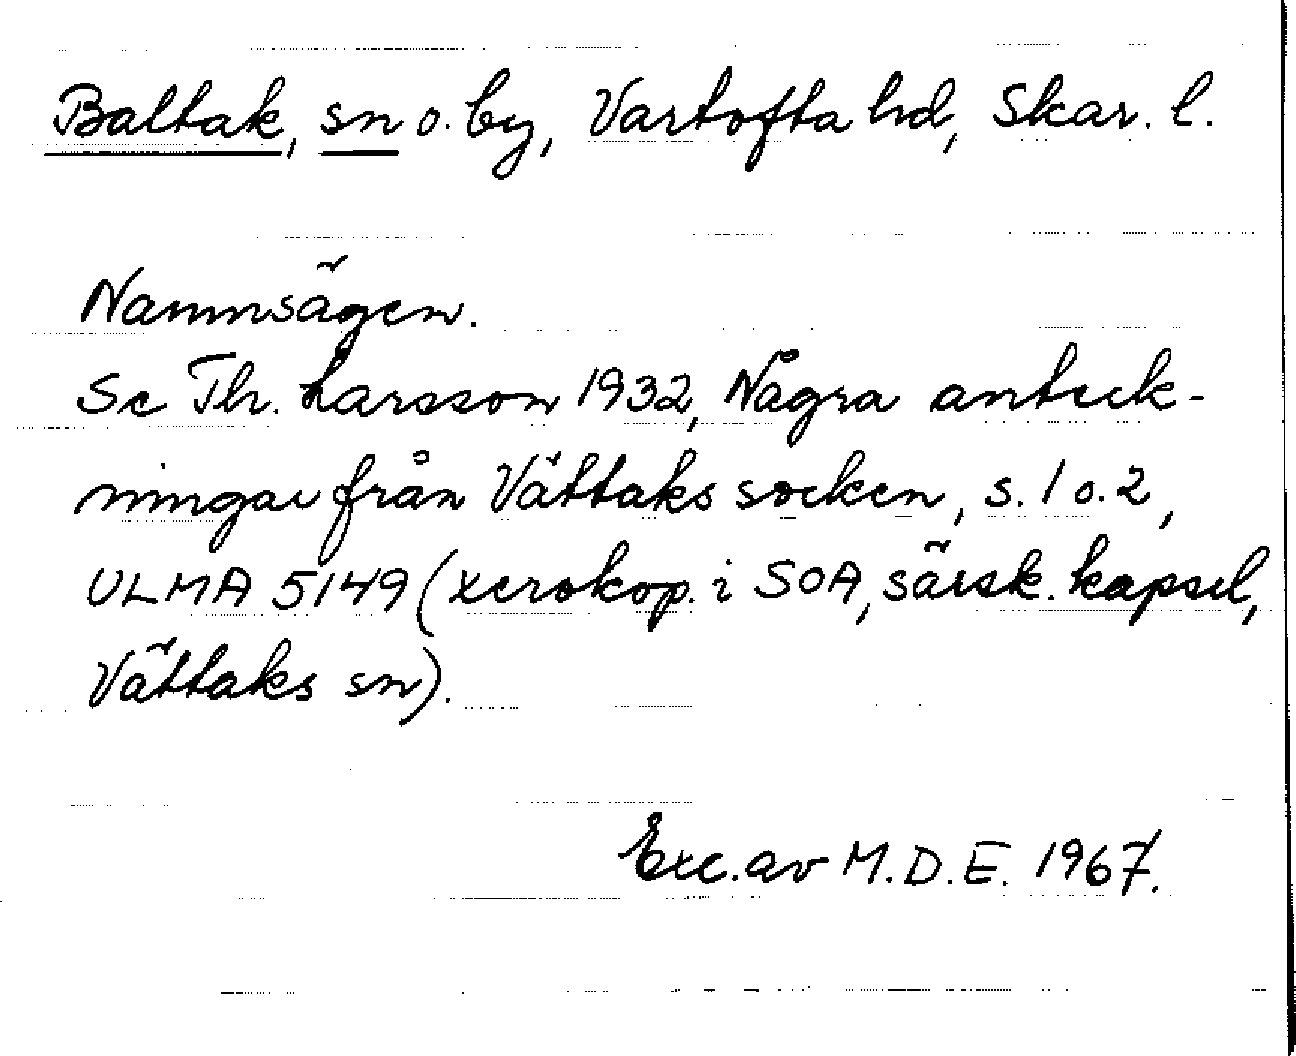 Baltak, sn o. by, Vartofta hd, Skar. l.
Namnsägen.
Se Th. Larsson 1932, Några anteck-
ningar från Vättaks socken, s. 1 o. 2,
ULMA 5149 (xerokop. i SOA, särsk. kapsel,
Vättaks sn).
Exc. av M.D.E. 1967.